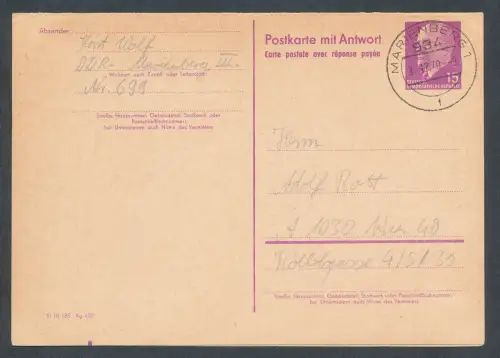 Absender:
Horst Wolf
DDR- Marienberg III
Wohnort, auch Zustell- oder Leitpostamt
Nr. 698
Straße, Hausnummer, Gebäudeteil, Stockwerk oder
Postschließfachnummer;
bei Untermietern auch Name des Vermieters
III 18 185 Ag 400
Postkarte mit Antwort
Carte postale avec réponse payée
MARIENBERG 1
934
15
DEUTSCHE
DEMOKRATISCHE REPUBLIK
Herrn
Adolf Rott
A 1030 Wien 40
4/5/39
Straße, Hausnummer, Gebäudeteil, Stockwerk oder Postschließfachnummer;
bei Untermietern auch Name des Vermieters